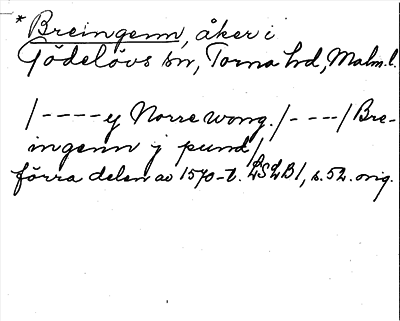 * Breingenn, åker i
Gödelövs sn, Torna hd, Malm.l.
/----ej Norre wong./----/Bre-
ingenn j pund/
förra delen av 1570-t. LSLB1, s.52. orig.